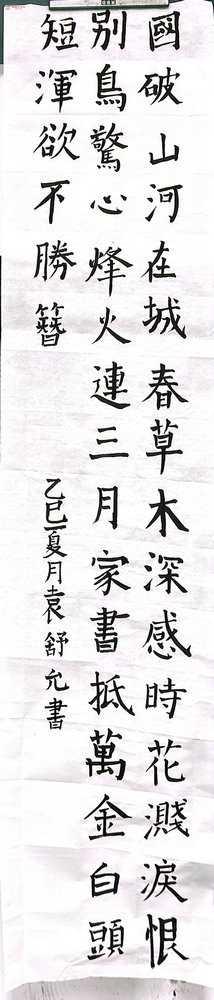 國破山河在城春草木深感時花濺淚恨
別鳥驚心烽火連三月家書抵萬金白頭
短渾欲不勝簪
乙巳夏月袁舒允書